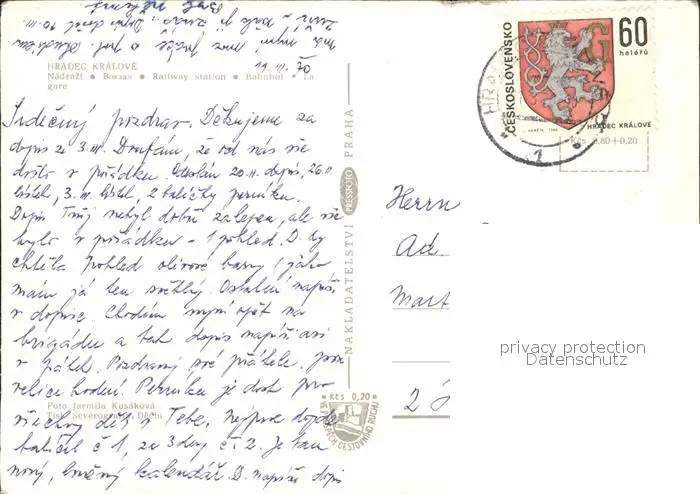 HRADEC KRÁLOVÉ
19. III. 70
Nádraží • Вокзал • Railway station • Bahnhof • La
gare
Srdečný pozdrav. Děkujeme za
dopis ze 3. III. Doufám, že od nás vše
došlo v pořádku. Odeslán 20. II. dopis, 26. II.
lístek, 3. III. lístek, 2 balíčky perníku.
Dopis Tvůj nebyl dobře zalepen, ale vše
bylo v pořádku – 1 pohled. D. by
chtěla pohled olivové barvy, jako
mám já ten světlý. Ostatní napíši
v dopise. Chodím nyní opět na
brigádu a tak dopis napíši asi
v pátek. Pozdravuj své přátele, jsou
velice hodní. Perníku je dost pro
všechny děti i Tebe, nejprve dojde
balíček č 1, za 3 dny č. 2. Je tam
nový, kalendář D. napíše dopis
Foto Jarmila Kusáková
Tisk Severografia Děčín
NAKLADATELSTVÍ PRESSFOTO PRAHA
Kčs 0,20
CESTOVNÍHO RUCHU
ČESKOSLOVENSKO
60
haléřů
G
HRADEC KRÁLOVÉ
Kčs 0,80+0,20
HRA
1
Herrn
Ad.
Mart
2
privacy protection
Datenschutz